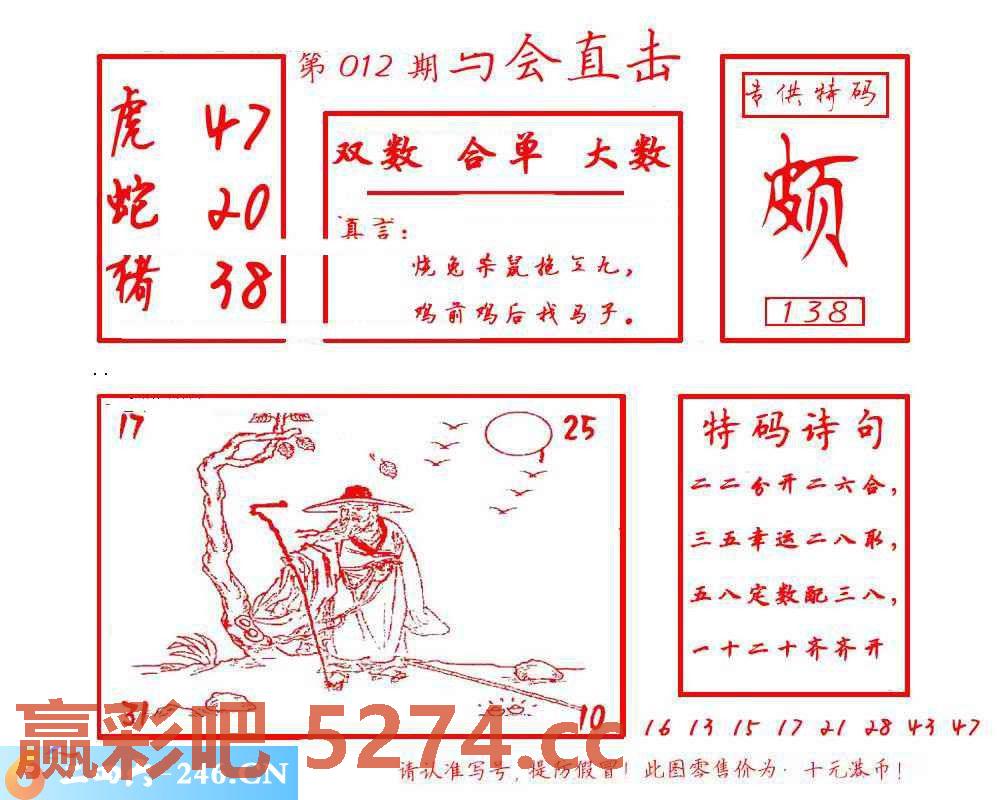 第 012 期 与会直击
虎 47
蛇 20
猪 38
双数 合单 大数
真言：
烧兔杀鼠拖三九，
鸡前鸡后找马子。
专供特码
颇
138
17
25
31
10
特码诗句
二二分开二六合，
三五幸运二八取，
五八定数配三八，
一十二十齐齐开
16 13 15 17 21 28 43 47
赢彩吧 5274.cc
-246.CN
请认准写号，提防假冒！此图零售价为·十元港币！